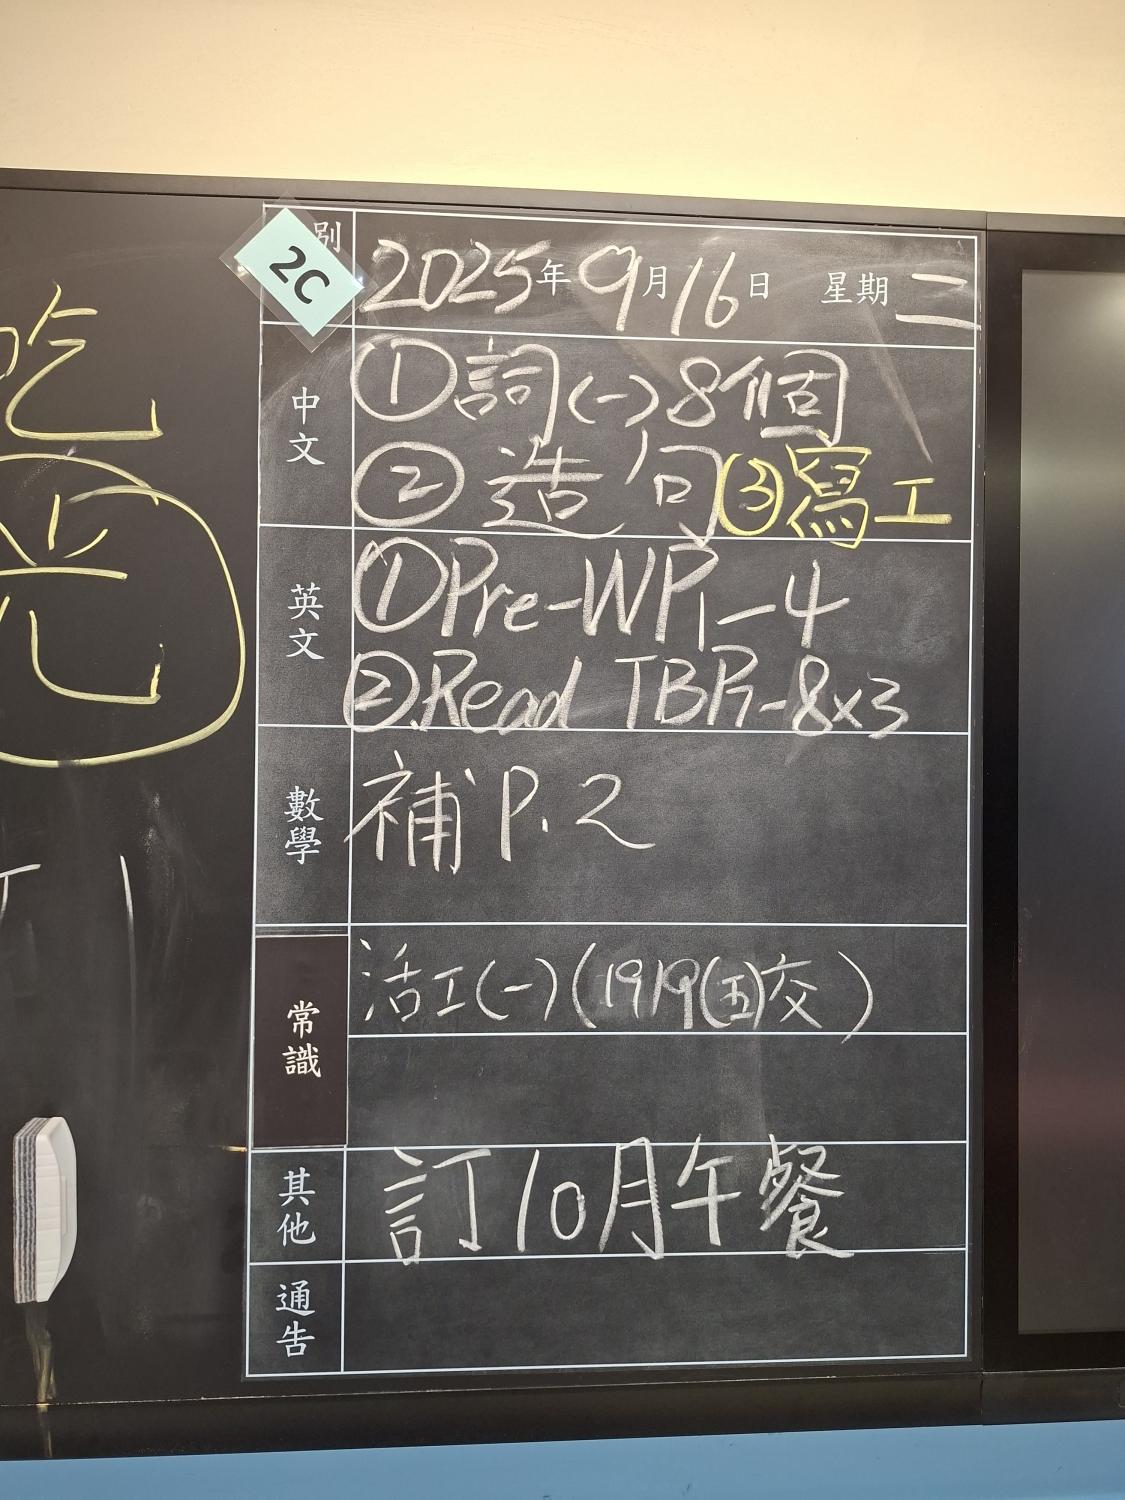 吃
光
別
2C
2025年9月16日 星期二
中文
①詞(一)8個
②造句③寫工
英文
①Pre-WP1-4
②.Read TBP7-8x3
數學
補P.2
常識
活工(一)(19/9(五)交)
其他
訂10月午餐
通告